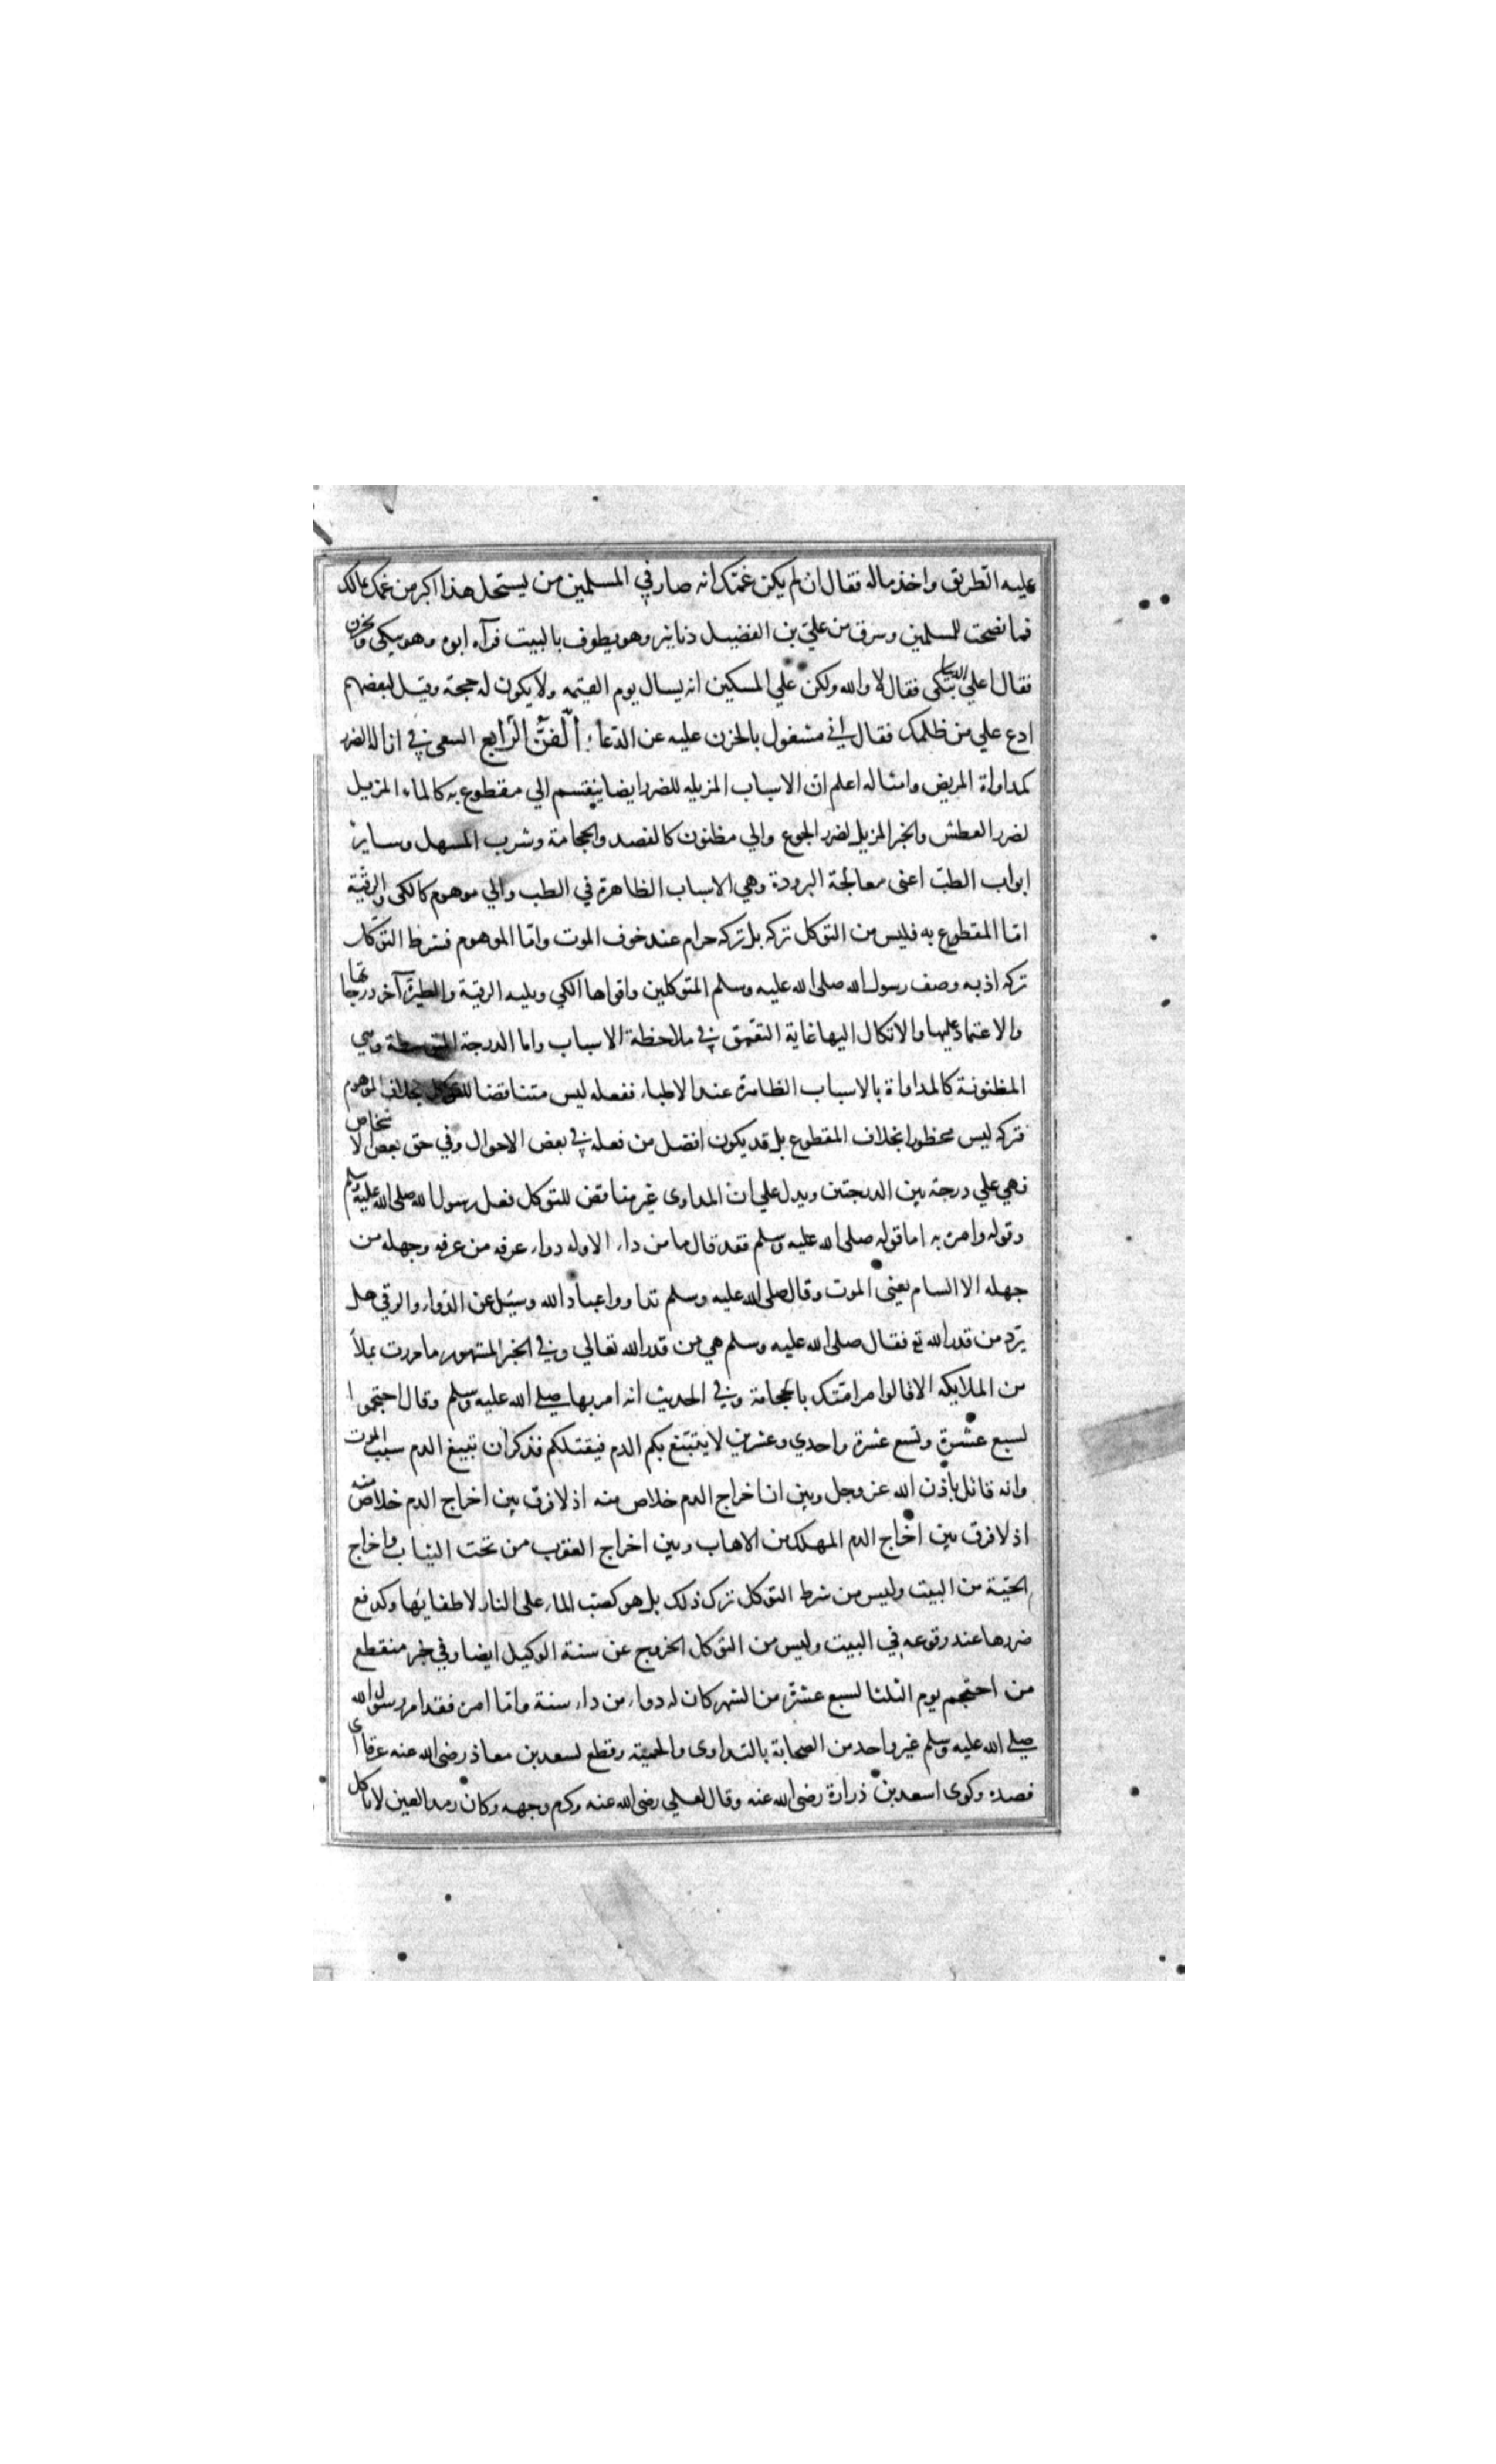 عليه الطريق واخذ ماله فقال ان لم يكن غمك انه صار في المسلمين من يستحل هذا اكبر من غمك بمالك
فما نصحت للمسلمين وسرق من علي بن الفضيل دنانير وهو يطوف بالبيت فرآه ابوه وهو يبكي ويحزن
فقال اعلي الدنانير تبكى فقال لا والله ولكن علي المسكين انه يسال يوم القيمه ولا يكون له حجة وقيل لبعضهم
ادع علي من ظلمك فقال اني مشغول بالحزن عليه عن الدعاء الفن الرابع السعى في ازالة الضرر
كمداواة المريض وامثاله اعلم ان الاسباب المزيله للضرر ايضا ينقسم الي مقطوع به كالماء المزيل
لضرر العطش والخبز المزيل لضرر الجوع والي مظنون كالفصد والحجامة وشرب المسهل وساير
ابواب الطب اعنى معالجة البرودة وهي الاسباب الظاهرة في الطب والي موهوم كالكى والرقية
امّا المقطوع به فليس من التوكل تركه بل تركه حرام عند خوف الموت وامّا الموهوم فشرط التوكل
تركه اذ به وصف رسول الله صلى الله عليه وسلم المتوكلين واقواها الكي ويليه الرقية والطيرة آخر درجاتها
والاعتماد عليها والاتكال اليها غاية التعمق في ملاحظة الاسباب واما الدرجة المتوسطة وهي
المظنونة كالمداواة بالاسباب الظاهرة عند الاطباء ففعله ليس متناقضا للتوكل بخلاف الموهوم
فتركه ليس محظورا بخلاف المقطوع بل قد يكون افضل من فعله في بعض الاحوال وفي حق بعض الاشخاص
فهي علي درجة بين الدرجتين ويدل علي ان المداوى غير مناقض للتوكل فعل رسول الله صلى الله عليه وسلم
وقوله وامره به اما قوله صلى الله عليه وسلم فقد قال ما من داء الا وله دواء عرفه من عرفه وجهله من
جهله الا السام يعنى الموت وقال صلى الله عليه وسلم تداووا عباد الله وسئل عن الدواء والرقي هل
يرد من قدر الله تع فقال صلى الله عليه وسلم هي من قدر الله تعالي وفي الخبر المشهور ما مررت بملأ
من الملايكه الا قالوا مر امتك بالحجامة وفي الحديث انه امر بها صلى الله عليه وسلم وقال احتجموا
لسبع عشرة وتسع عشرة واحدي وعشرين لا يتبيغ بكم الدم فيقتلكم فذكر ان تبيغ الدم سبب الموت
وانه قاتل باذن الله عز وجل وبين ان اخراج الدم خلاص منه اذ لا فرق بين اخراج الدم خلاص منه
اذ لا فرق بين اخراج الدم المهلك من الاهاب وبين اخراج العقرب من تحت الثياب واخراج
الحيّة من البيت وليس من شرط التوكل ترك ذلك بل هو كصب الماء على النار لاطفايها وكدفع
ضررها عند وقوعه في البيت وليس من التوكل الخروج عن سنة الوكيل ايضا وفي خبر منقطع
من احتجم يوم الثلثا لسبع عشرة من الشهر كان له دواء من داء سنة وامّا امره فقد امر رسول الله
صلى الله عليه وسلم غير واحد من الصحابة بالتداوى والحمية وقطع لسعد بن معاذ رضى الله عنه عرقا اى
فصده وكوى اسعد بن ذرارة رضى الله عنه وقال لعلي رضى الله عنه وكرم وجهه وكان رمد العين لا تاكل